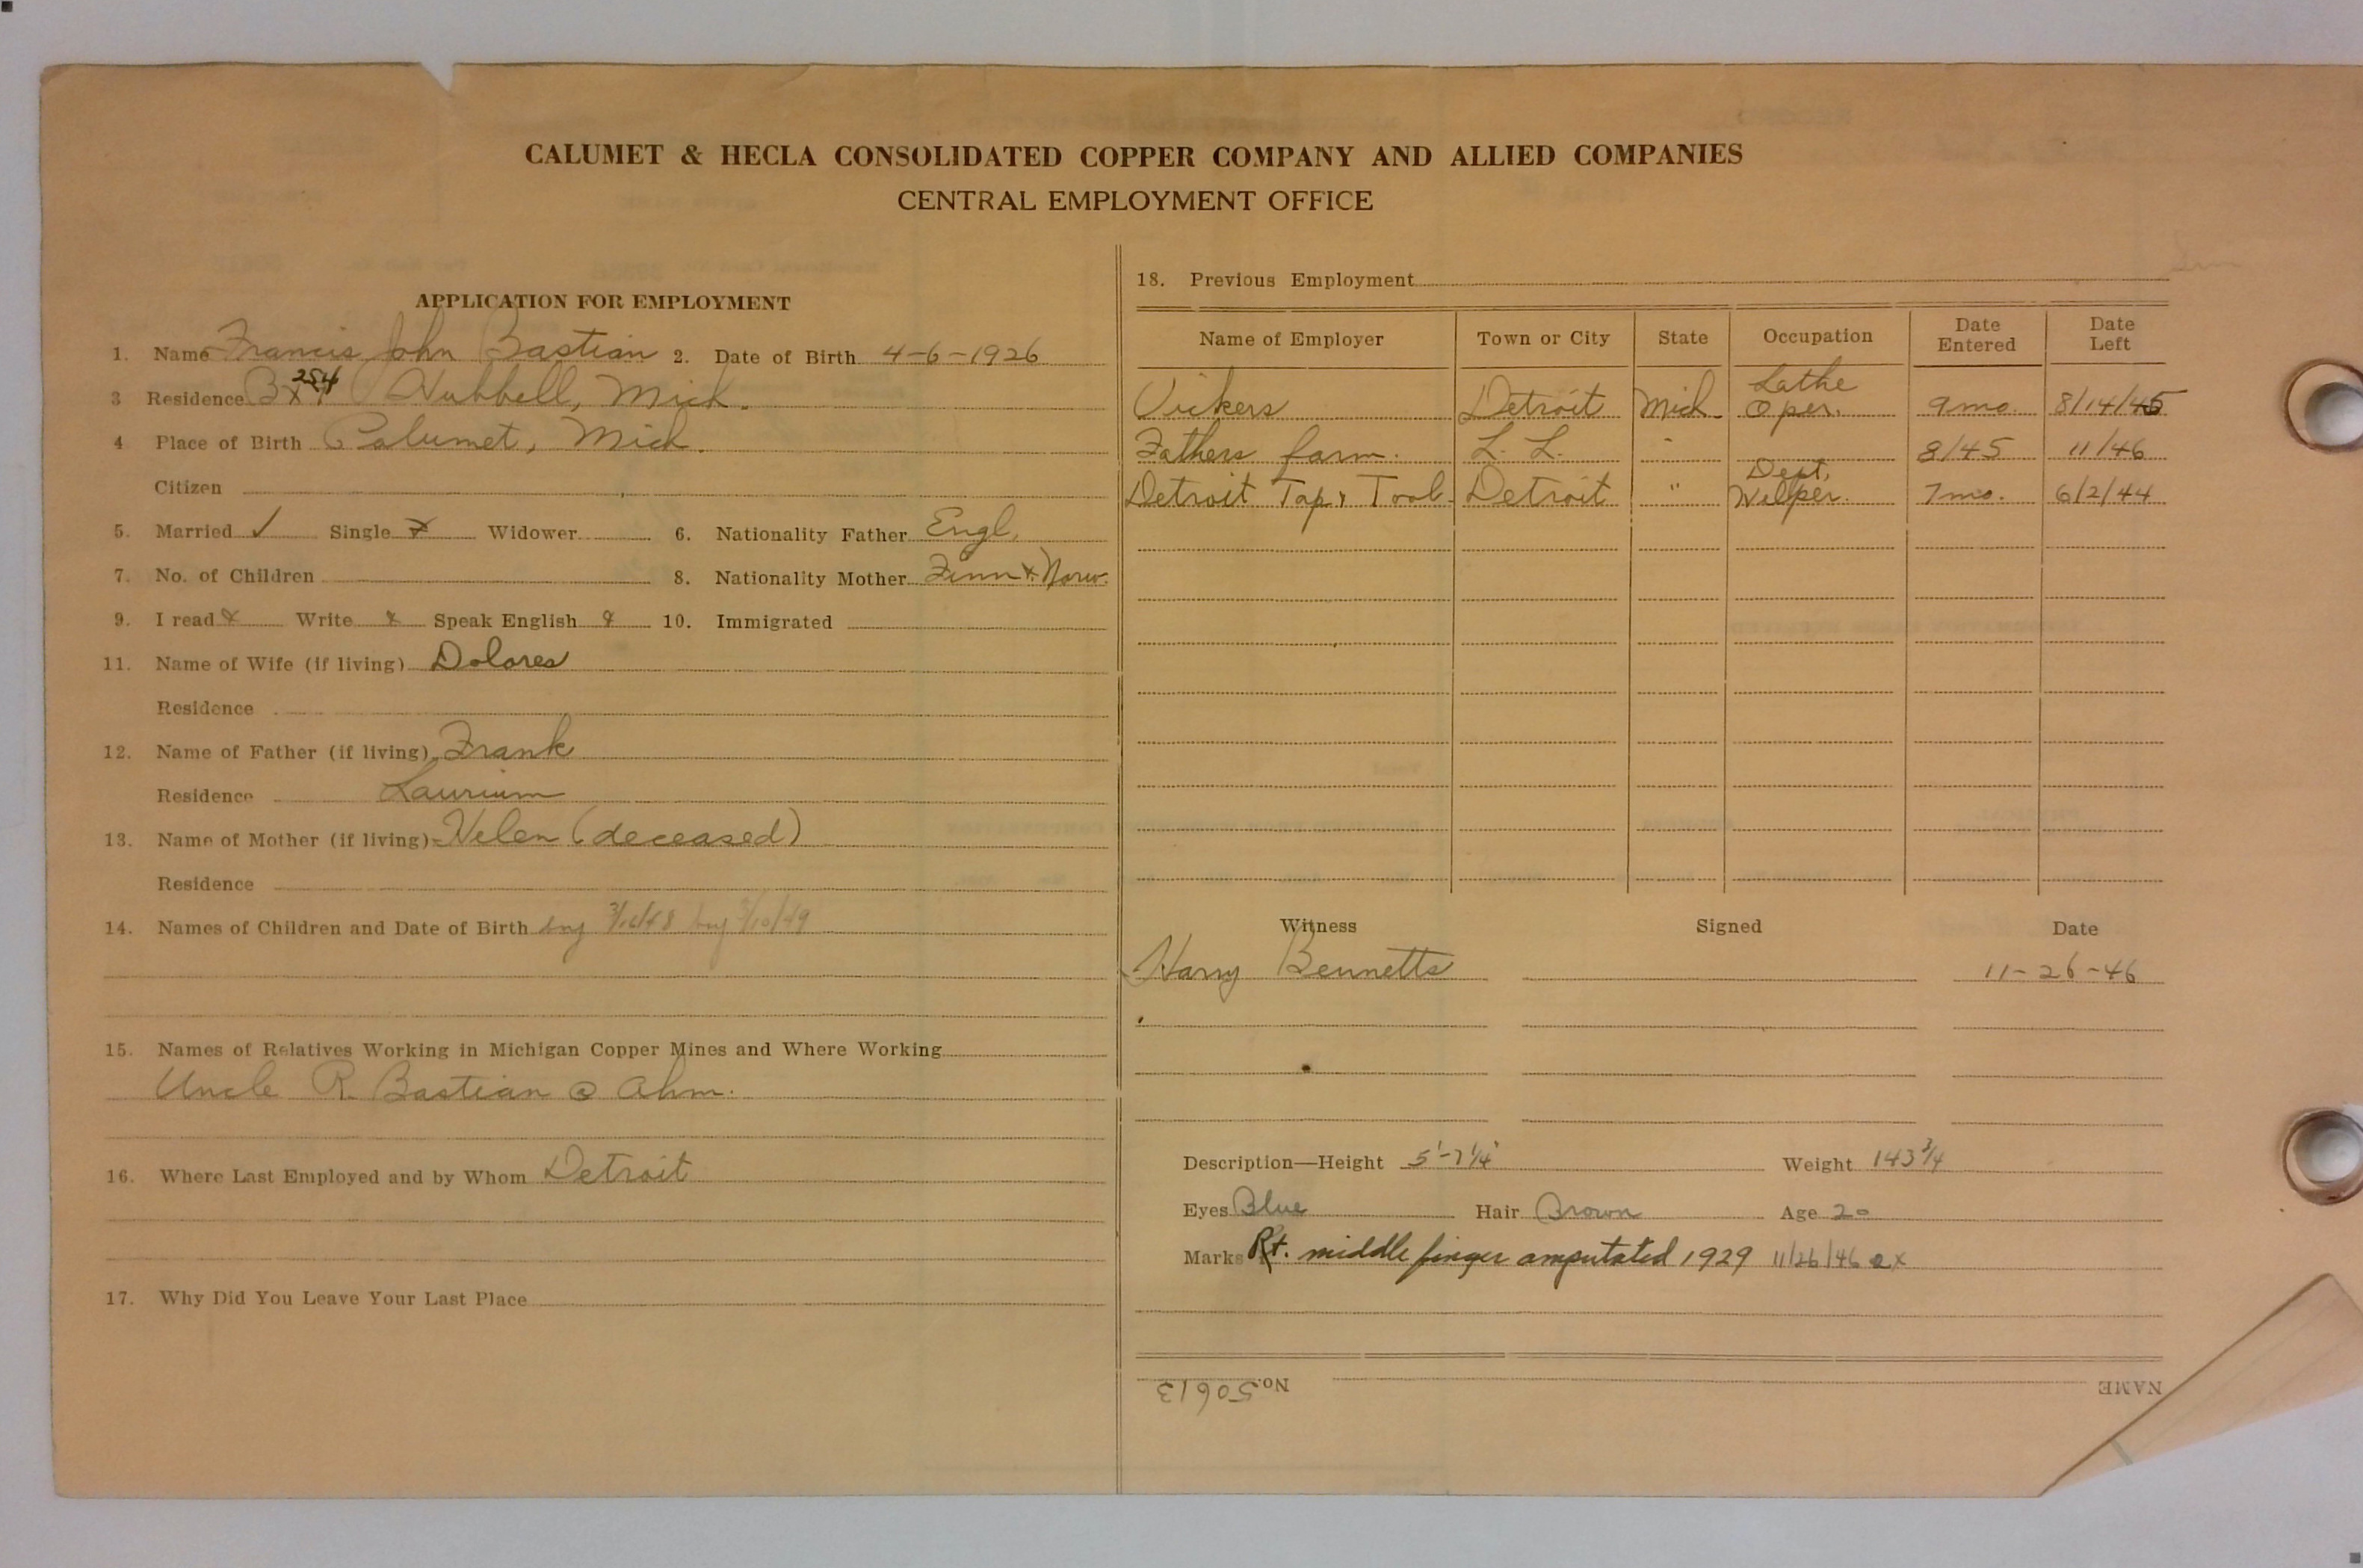 CALUMET & HECLA CONSOLIDATED COPPER COMPANY AND ALLIED COMPANIES
CENTRAL EMPLOYMENT OFFICE
APPLICATION FOR EMPLOYMENT
1. Name Francis John Bastian 2. Date of Birth 4-6-1926
3 Residence Bx 254 Hubbell, Mich.
4 Place of Birth Calumet, Mich.
Citizen
5. Married ✓ Single x Widower 6. Nationality Father Engl.
7. No. of Children 8. Nationality Mother Finn & Norw.
9. I read x Write x Speak English x 10. Immigrated
11. Name of Wife (if living) Dolores
Residence
12. Name of Father (if living) Frank
Residence Laurium
13. Name of Mother (if living) Helen (deceased)
Residence
14. Names of Children and Date of Birth boy 3/16/48 boy 3/10/49
15. Names of Relatives Working in Michigan Copper Mines and Where Working
Uncle R. Bastian @ Ahm.
16. Where Last Employed and by Whom Detroit
17. Why Did You Leave Your Last Place
18. Previous Employment
Name of Employer Town or City State Occupation Date Entered Date Left
Vickers Detroit Mich. Lathe Oper. 9 mo. 8/14/45
Fathers farm. L. L. " 8/45 11/46
Detroit Tap & Tool Detroit " Dept. 7 mo. 6/2/44
Witness Signed Date
Harry Bennetts 11-26-46
Description—Height 5'-7 1/4" Weight 143 3/4
Eyes Blue Hair Brown Age 20
Marks Rt. middle finger amputated 1929 11/26/46
No. 50613 NAME